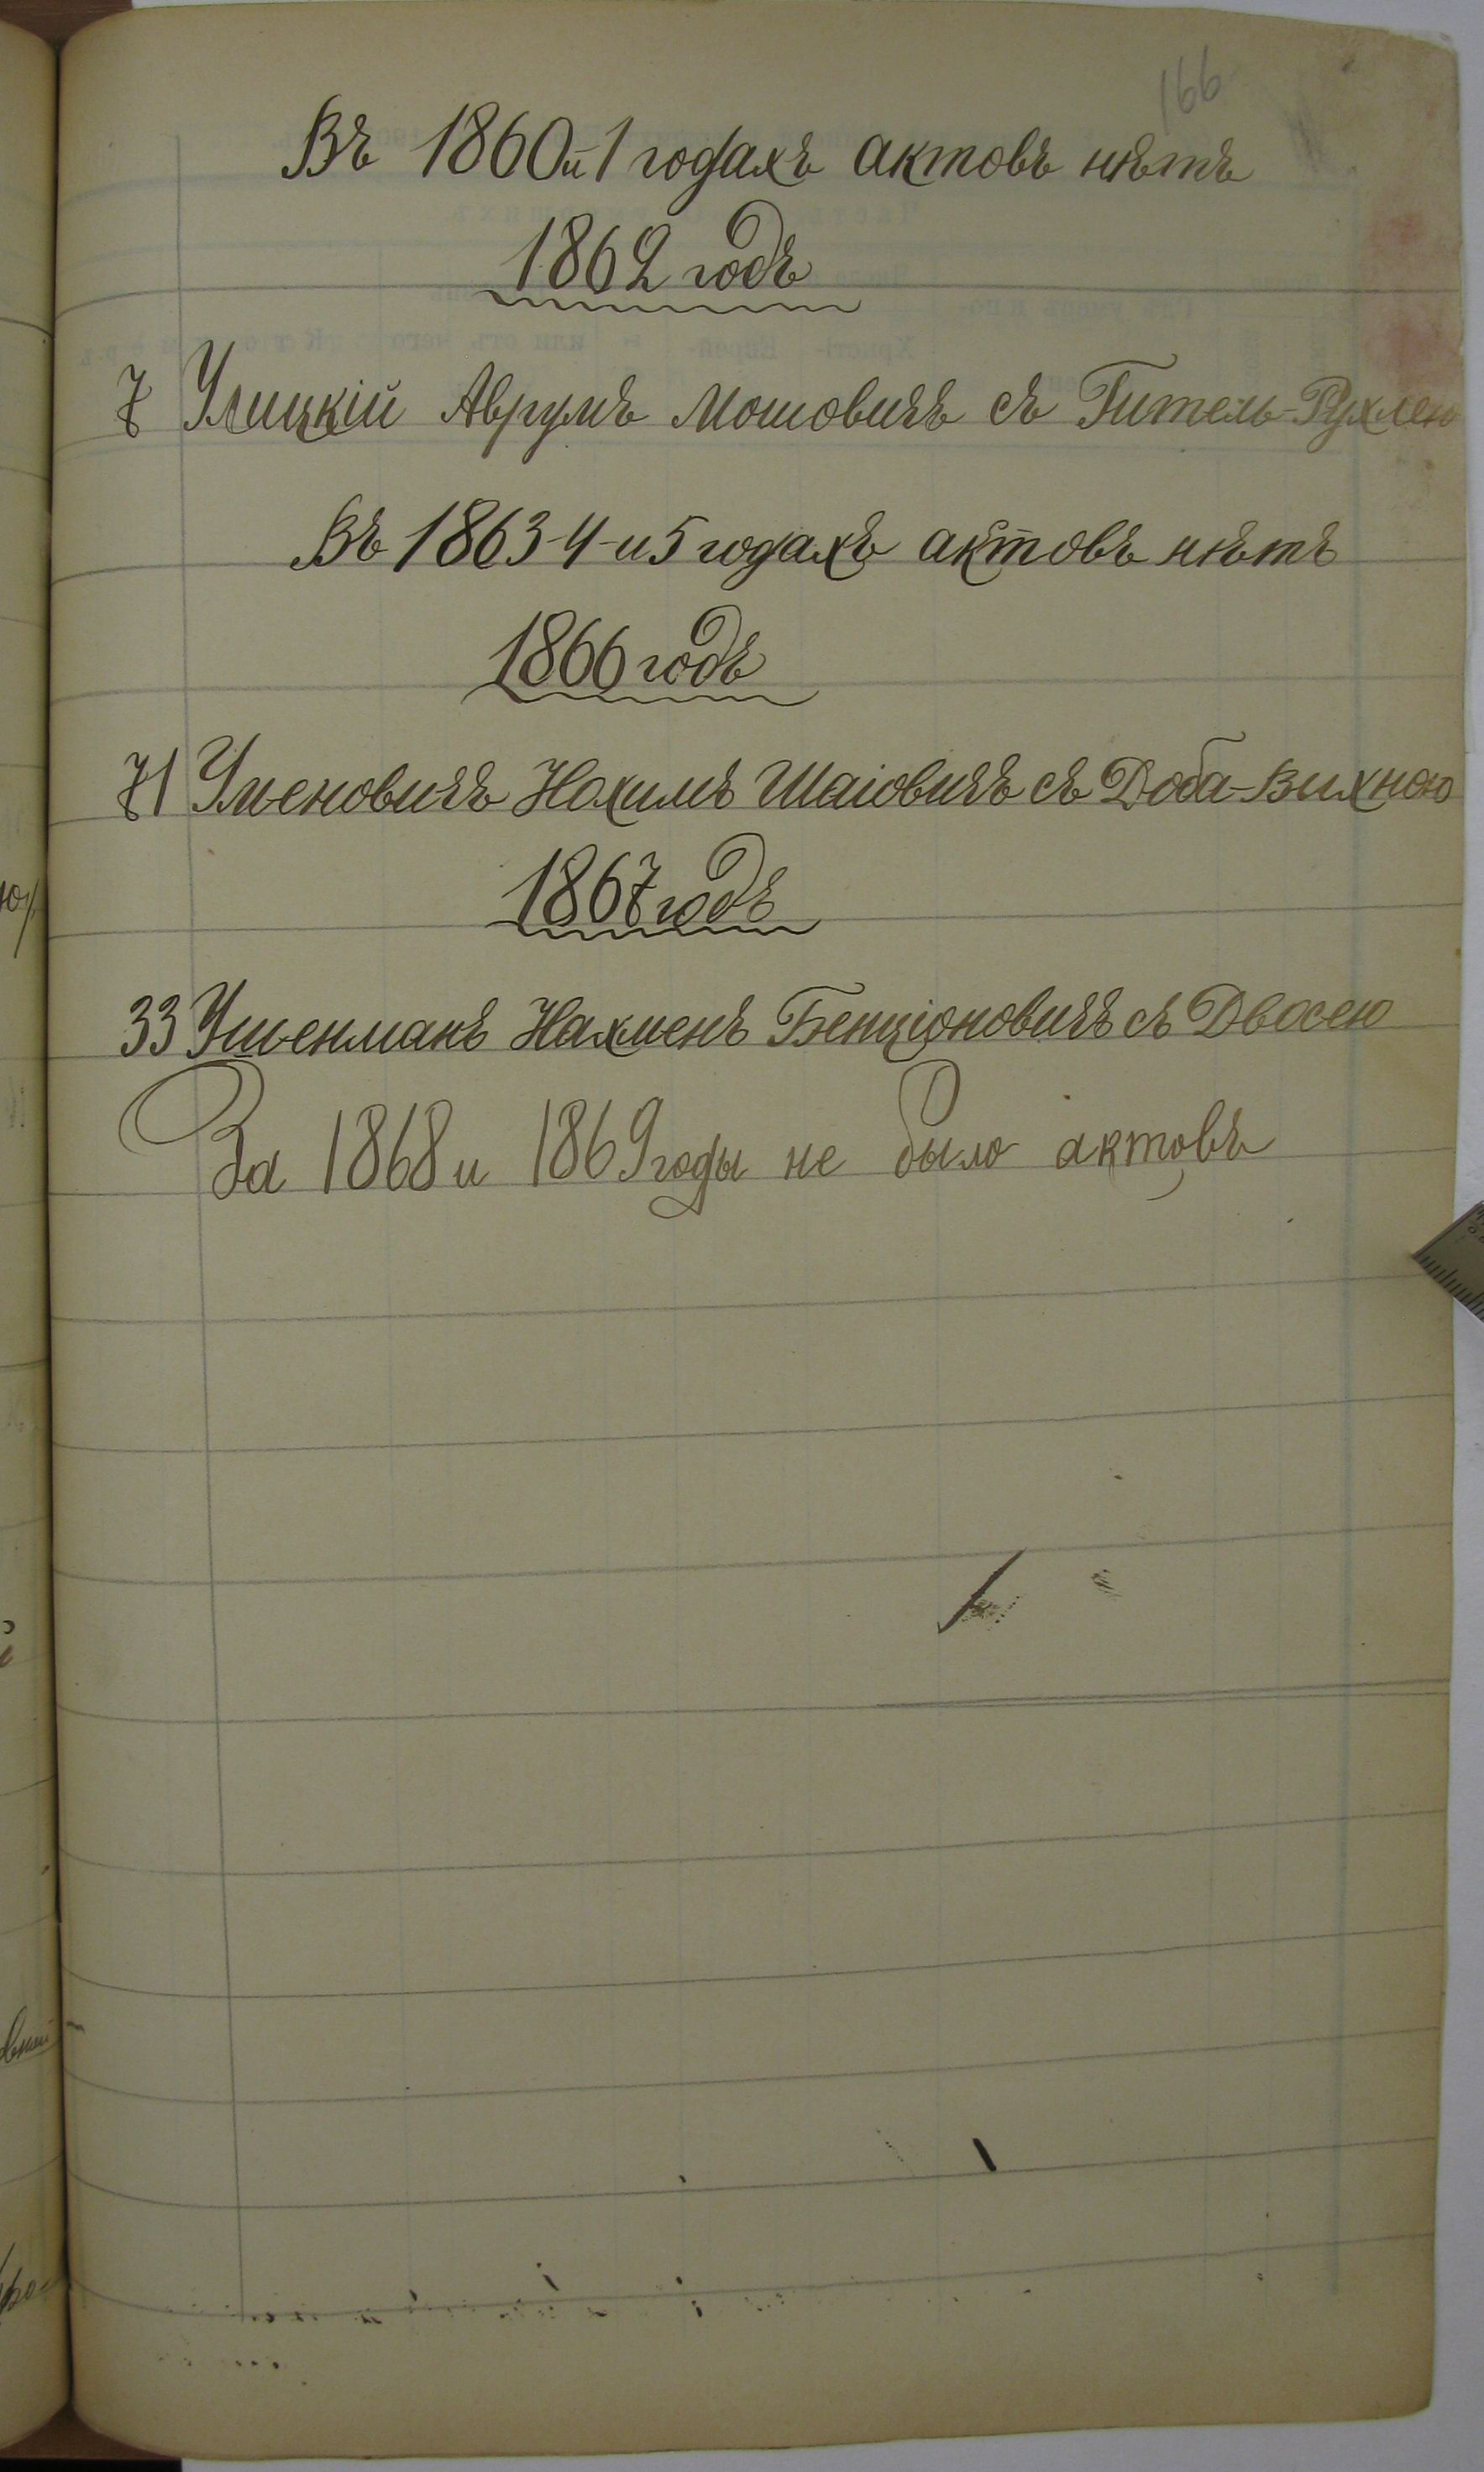 166
Въ 1860 и 1 годахъ актовъ нѣтъ
1862 годъ
7 Улицкій Аврумъ Мошовичъ съ Гитель-Рухлею
Въ 1863-4-и 5 годахъ актовъ нѣтъ
1866 годъ
71 Уменовичъ Нохимъ Шаіовичъ съ Доба-Вихною
1867 годъ
33 Ушенмакъ Нахменъ Бенціоновичъ съ Двосею
За 1868 и 1869 годы не было актовъ